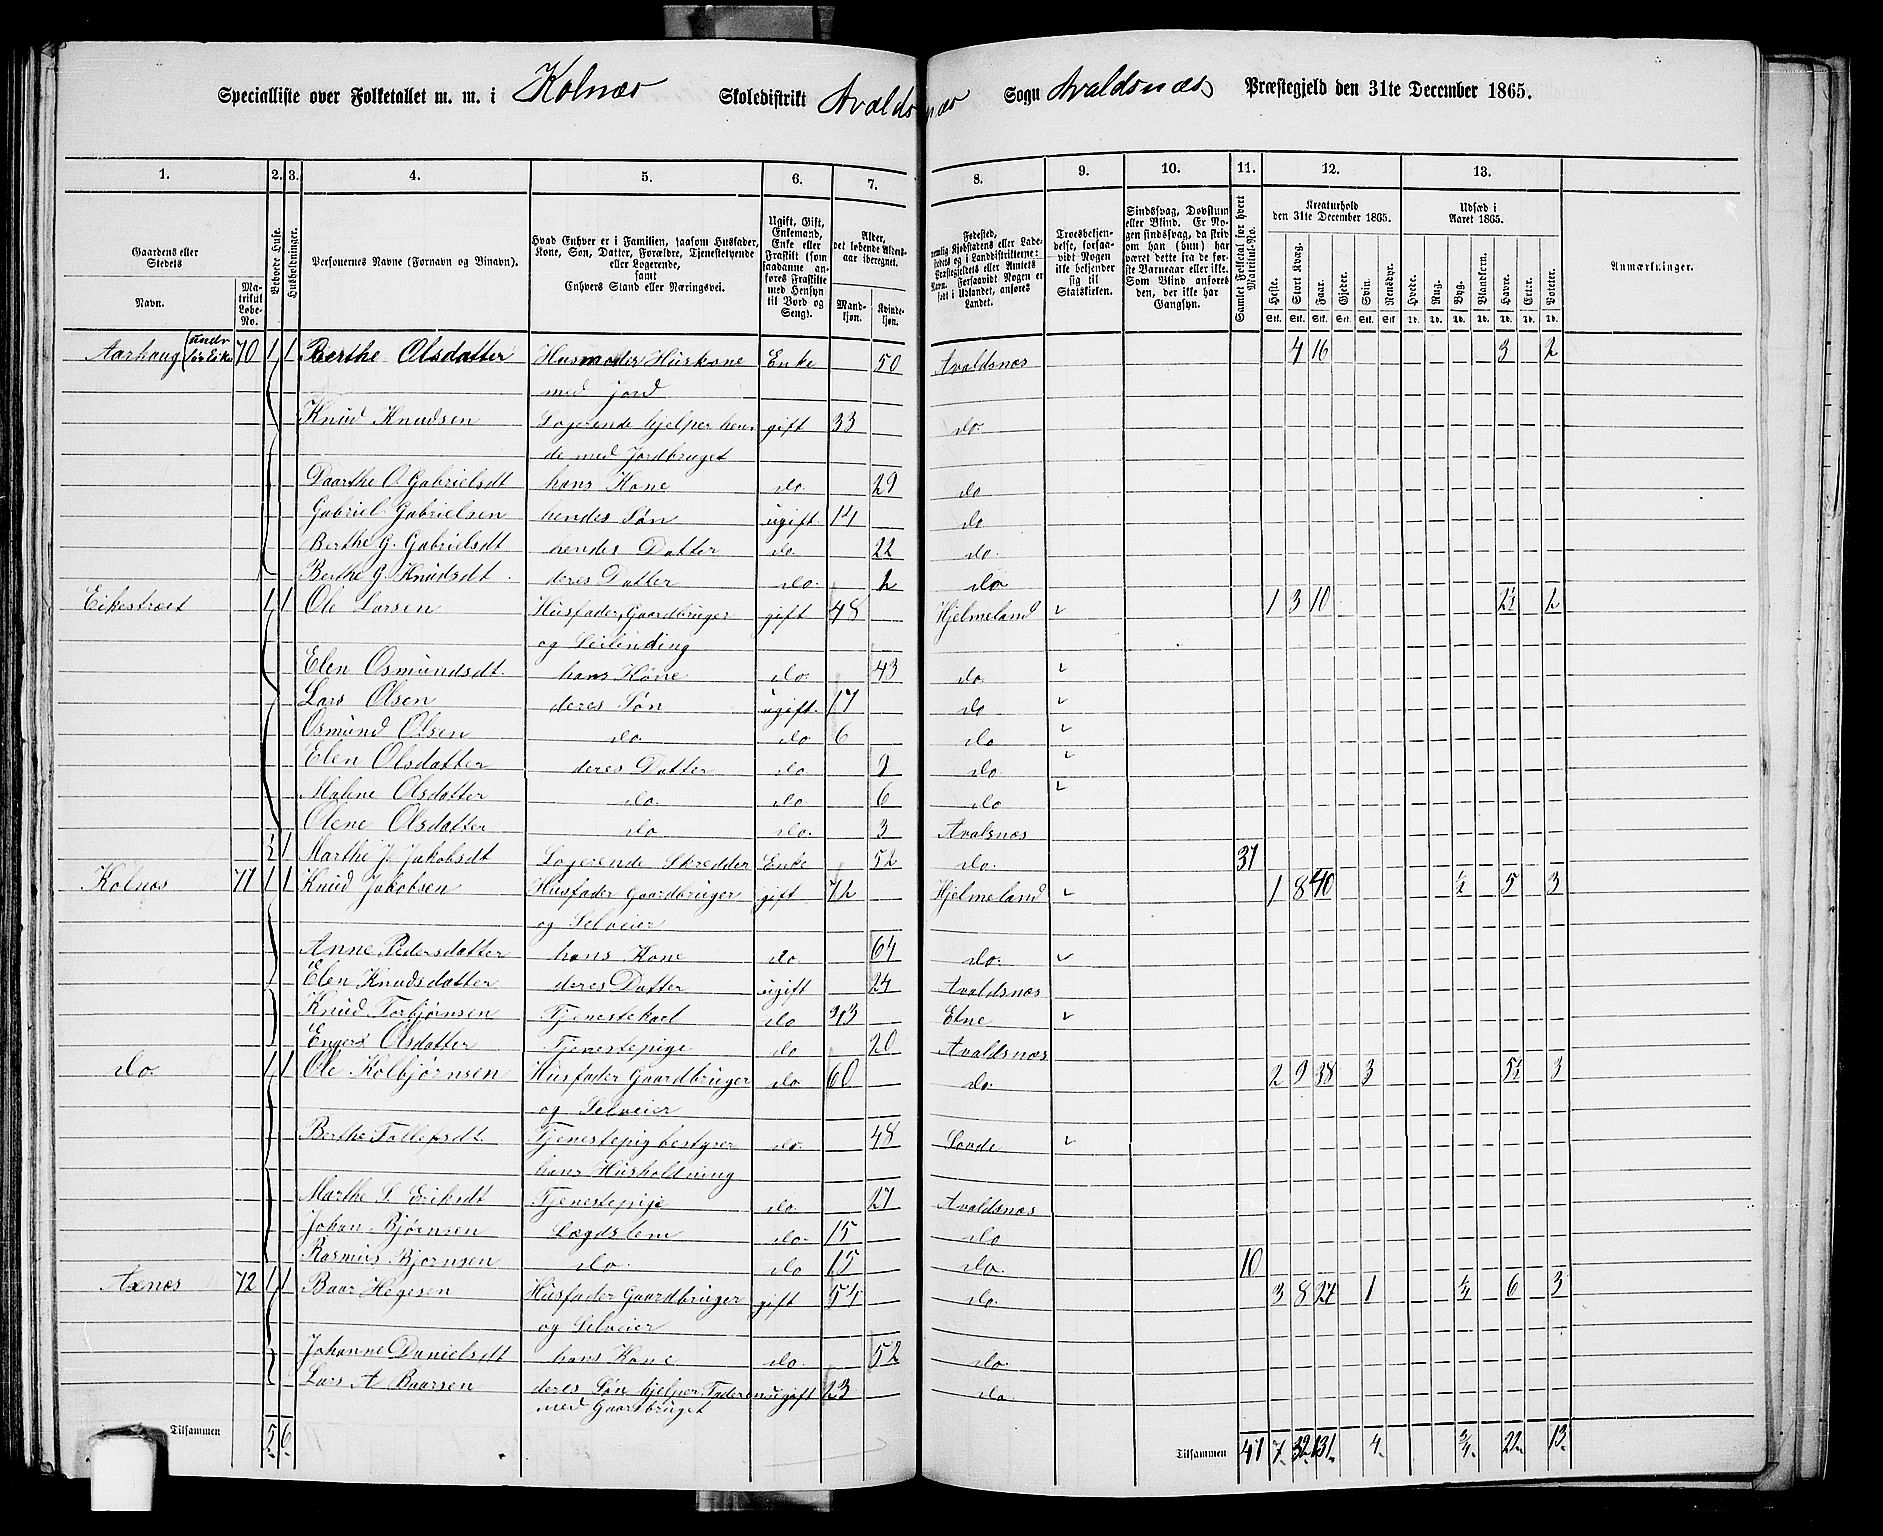 Specialliste over Folketallet m. m. i Kolnæs Skoledistrikt Avaldsnæs Sogn Avaldsnæs Præstegjeld den 31te December 1865.
1. 2. 3. 4. 5. 6. 7. 8. 9. 10. 11. 12. 13.
Gaardens eller Stedets Navn. Matrikul Løbe-No. Beboede Huse. Husholdninger. Personernes Navne (Fornavn og Binavn).
Hvad Enhver er i Familien, saasom Husfader, Kone, Søn, Datter, Forældre, Tjenestetyende eller Logerende, samt Enhvers Stand eller Næringsvei.
Ugift, Gift, Enkemand, Enke eller Fraskilt (som saadanne anføres Fraskilte med Hensyn til Bord og Seng).
Alder, det løbende Aldersaar iberegnet. Mandkjøn. Kvindekjøn.
Troesbekjendelse, forsaavidt Nogen ikke bekjender sig til Statskirken.
Sindssvag, Døvstum eller Blind. Er Nogen sindssvag, da skriv om han (hun) har været dette fra de første Barneaar eller ikke. Som Blind anføres den, der ikke har Gangsyn.
Samlet Folketal for hvert Matrikul-No.
Kreaturhold den 31te December 1865. Heste. Stort Kvæg. Faar. Gjeder. Svin. Rensdyr.
Udsæd i Aaret 1865. Hvede. Rug. Byg. Blandkorn. Havre. Erter. Poteter.
Anmærkninger.
Aarhaug 70 1 1 Berthe Olsdatter Husmoder Huskone Enke 50 Avaldsnæs 4 16 3 2
med Jord
Knud Knudsen Logerende hjelper hen- gift 33 do
de med Jordbruget
Daarthe O. Gabrielsdt hans Kone do 29 do
Gabriel Gabrielsen hendes Søn ugift 14 do
Berthe G. Gabrielsdt hendes Datter do 22 do
Berthe G. Knudsdt. deres Datter do. 2 do
Eikestræet 1 1 Ole Larsen Husfader, Gaardbruger gift 48 Hjelmeland 1 3 10 2½ 2
og Leilending
Elen Osmundsdt. hans Kone do. 43 do
Lars Olsen deres Søn ugift. 17 do
Osmund Olsen do. do 6 do
Elen Olsdatter deres Datter do 9 do
Malene Olsdatter do. do. 6 do
Olene Olsdatter do do. 3 Avalsnæs
1 Marthe J. Jakobsdt Logerende Skredder Enke 52 do. 37
Kolnæs 71 1 1 Knud Jakobsen Husfader Gaardbruger gift 72 Hjelmeland 1 8 40 ½ 5 3
og Selveier
Anne Pedersdatter hans Kone do. 64 do.
Elen Knudsdatter deres Datter ugift 24 Avaldsnæs
Knud Torbjørnsen Tjenestekarl do Etne
Olsdatter Tjenestepige do 20 Avaldsnæs
do. 1 1 Ole Kolbjørnsen Husfader Gaardbruger do. 60 do. 2 9 38 3 5½ 3
og Selveier
Berthe Tollefsdt. Tjenestepig bestyrer do. 48 Sovde
hans Husholdning
Marthe S. Eriksdt Tjenestepige do. 27 Avaldsnæs
Johan Bjørnsen Lægdslem do. 15 do
Rasmus Bjørnsen do. do 15 do. 10
Axnæs 72 1 1 Baar Hegesen Husfader Gaardbruger gift 54 do. 3 8 27 1 ¼ 6 3
og Selveier
Johanne Danielsdt hans Kone do. 52 do.
Lars A Baarsen deres Søn hjelper Faderen ugift 23 do.
med Gaardbruget
Tilsammen 5 6 Tilsammen 47 7 32 131 4 ¾ 22 13